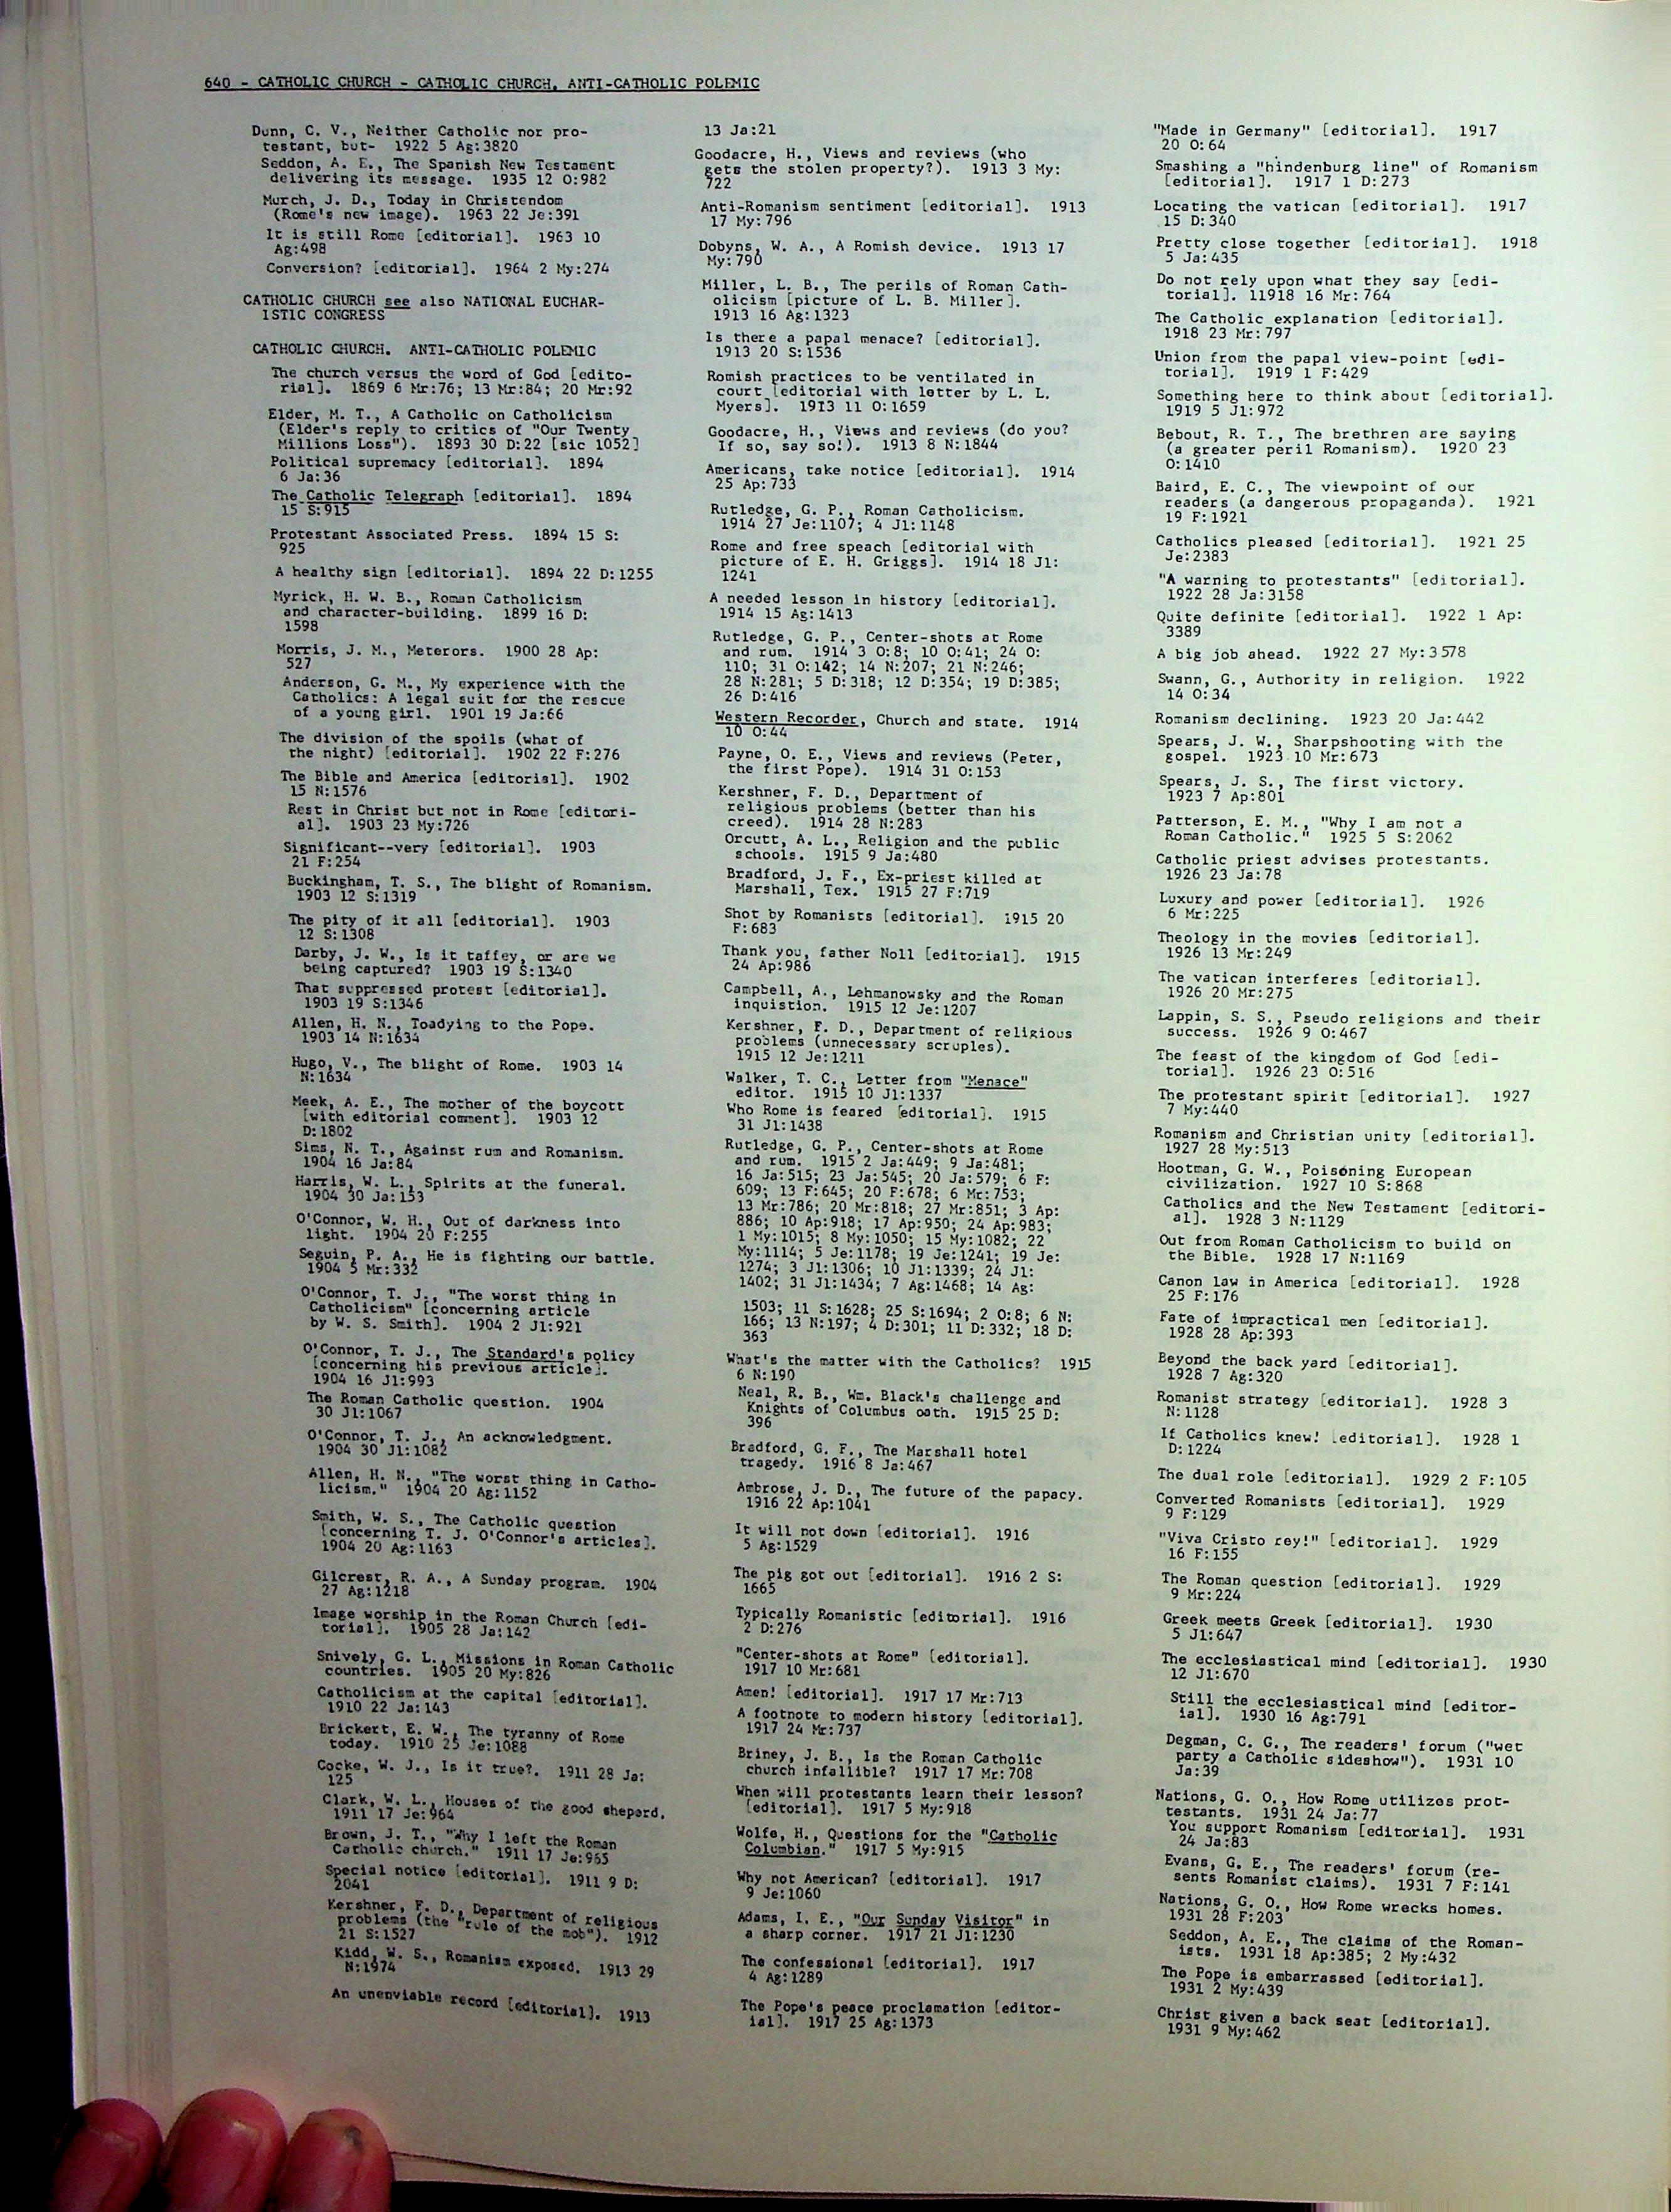 640 - CATHOLIC CHURCH - CATHOLIC CHURCH, ANTI-CATHOLIC POLEMIC
Dunn, C. V., Neither Catholic nor pro-
testant, but- 1922 5 Ag:3820
Seddon, A. E., The Spanish New Testament
delivering its message. 1935 12 O:982
Murch, J. D., Today in Christendom
(Rome's new image). 1963 22 Je:391
It is still Rome [editorial]. 1963 10
Ag:498
Conversion? [editorial]. 1964 2 My:274
CATHOLIC CHURCH see also NATIONAL EUCHAR-
ISTIC CONGRESS
CATHOLIC CHURCH. ANTI-CATHOLIC POLEMIC
The church versus the word of God [edito-
rial]. 1869 6 Mr:76; 13 Mr:84; 20 Mr:92
Elder, M. T., A Catholic on Catholicism
(Elder's reply to critics of "Our Twenty
Millions Loss"). 1893 30 D:22 [sic 1052]
Political supremacy [editorial]. 1894
6 Ja:36
The Catholic Telegraph [editorial]. 1894
15 S:915
Protestant Associated Press. 1894 15 S:
925
A healthy sign [editorial]. 1894 22 D:1255
Myrick, H. W. B., Roman Catholicism
and character-building. 1899 16 D:
1598
Morris, J. M., Meterors. 1900 28 Ap:
527
Anderson, G. M., My experience with the
Catholics: A legal suit for the rescue
of a young girl. 1901 19 Ja:66
The division of the spoils (what of
the night) [editorial]. 1902 22 F:276
The Bible and America [editorial]. 1902
15 N:1576
Rest in Christ but not in Rome [editori-
al]. 1903 23 My:726
Significant--very [editorial]. 1903
21 F:254
Buckingham, T. S., The blight of Romanism.
1903 12 S:1319
The pity of it all [editorial]. 1903
12 S:1308
Darby, J. W., Is it taffey, or are we
being captured? 1903 19 S:1340
That suppressed protest [editorial].
1903 19 S:1346
Allen, H. N., Toadying to the Pope.
1903 14 N:1634
Hugo, V., The blight of Rome. 1903 14
N:1634
Meek, A. E., The mother of the boycott
[with editorial comment]. 1903 12
D:1802
Sims, N. T., Against rum and Romanism.
1904 16 Ja:84
Harris, W. L., Spirits at the funeral.
1904 30 Ja:153
O'Connor, W. H., Out of darkness into
light. 1904 20 F:255
Seguin, P. A., He is fighting our battle.
1904 5 Mr:332
O'Connor, T. J., "The worst thing in
Catholicism" [concerning article
by W. S. Smith]. 1904 2 Jl:921
O'Connor, T. J., The Standard's policy
[concerning his previous article].
1904 16 Jl:993
The Roman Catholic question. 1904
30 Jl:1067
O'Connor, T. J., An acknowledgment.
1904 30 Jl:1082
Allen, H. N., "The worst thing in Catho-
licism." 1904 20 Ag:1152
Smith, W. S., The Catholic question
[concerning T. J. O'Connor's articles].
1904 20 Ag:1163
Gilcrest, R. A., A Sunday program. 1904
27 Ag:1218
Image worship in the Roman Church [edi-
torial]. 1905 28 Ja:142
Snively, G. L., Missions in Roman Catholic
countries. 1905 20 My:826
Catholicism at the capital [editorial].
1910 22 Ja:143
Brickert, E. W., The tyranny of Rome
today. 1910 25 Je:1088
Cocke, W. J., Is it true?. 1911 28 Ja:
125
Clark, W. L., Houses of the good sheperd.
1911 17 Je:964
Brown, J. T., "Why I left the Roman
Catholic church." 1911 17 Je:965
Special notice [editorial]. 1911 9 D:
2041
Kershner, F. D., Department of religious
problems (the "rule of the mob"). 1912
21 S:1527
Kidd, W. S., Romanism exposed. 1913 29
N:1974
An unenviable record [editorial]. 1913
13 Ja:21
Goodacre, H., Views and reviews (who
gets the stolen property?). 1913 3 My:
722
Anti-Romanism sentiment [editorial]. 1913
17 My:796
Dobyns, W. A., A Romish device. 1913 17
My:790
Miller, L. B., The perils of Roman Cath-
olicism [picture of L. B. Miller].
1913 16 Ag:1323
Is there a papal menace? [editorial].
1913 20 S:1536
Romish practices to be ventilated in
court [editorial with letter by L. L.
Myers]. 1913 11 O:1659
Goodacre, H., Views and reviews (do you?
If so, say so!). 1913 8 N:1844
Americans, take notice [editorial]. 1914
25 Ap:733
Rutledge, G. P., Roman Catholicism.
1914 27 Je:1107; 4 Jl:1148
Rome and free speach [editorial with
picture of E. H. Griggs]. 1914 18 Jl:
1241
A needed lesson in history [editorial].
1914 15 Ag:1413
Rutledge, G. P., Center-shots at Rome
and rum. 1914 3 O:8; 10 O:41; 24 O:
110; 31 O:142; 14 N:207; 21 N:246;
28 N:281; 5 D:318; 12 D:354; 19 D:385;
26 D:416
Western Recorder, Church and state. 1914
10 O:44
Payne, O. E., Views and reviews (Peter,
the first Pope). 1914 31 O:153
Kershner, F. D., Department of
religious problems (better than his
creed). 1914 28 N:283
Orcutt, A. L., Religion and the public
schools. 1915 9 Ja:480
Bradford, J. F., Ex-priest killed at
Marshall, Tex. 1915 27 F:719
Shot by Romanists [editorial]. 1915 20
F:683
Thank you, father Noll [editorial]. 1915
24 Ap:986
Campbell, A., Lehmanowsky and the Roman
inquistion. 1915 12 Je:1207
Kershner, F. D., Department of religious
problems (unnecessary scruples).
1915 12 Je:1211
Walker, T. C., Letter from "Menace"
editor. 1915 10 Jl:1337
Who Rome is feared [editorial]. 1915
31 Jl:1438
Rutledge, G. P., Center-shots at Rome
and rum. 1915 2 Ja:449; 9 Ja:481;
16 Ja:515; 23 Ja:545; 20 Ja:579; 6 F:
609; 13 F:645; 20 F:678; 6 Mr:753;
13 Mr:786; 20 Mr:818; 27 Mr:851; 3 Ap:
886; 10 Ap:918; 17 Ap:950; 24 Ap:983;
1 My:1015; 8 My:1050; 15 My:1082; 22
My:1114; 5 Je:1178; 19 Je:1241; 19 Je:
1274; 3 Jl:1306; 10 Jl:1339; 24 Jl:
1402; 31 Jl:1434; 7 Ag:1468; 14 Ag:
1503; 11 S:1628; 25 S:1694; 2 O:8; 6 N:
166; 13 N:197; 4 D:301; 11 D:332; 18 D:
363
What's the matter with the Catholics? 1915
6 N:190
Neal, R. B., Wm. Black's challenge and
Knights of Columbus oath. 1915 25 D:
396
Bradford, G. F., The Marshall hotel
tragedy. 1916 8 Ja:467
Ambrose, J. D., The future of the papacy.
1916 22 Ap:1041
It will not down [editorial]. 1916
5 Ag:1529
The pig got out [editorial]. 1916 2 S:
1665
Typically Romanistic [editorial]. 1916
2 D:276
"Center-shots at Rome" [editorial].
1917 10 Mr:681
Amen! [editorial]. 1917 17 Mr:713
A footnote to modern history [editorial].
1917 24 Mr:737
Briney, J. B., Is the Roman Catholic
church infallible? 1917 17 Mr:708
When will protestants learn their lesson?
[editorial]. 1917 5 My:918
Wolfe, H., Questions for the "Catholic
Columbian." 1917 5 My:915
Why not American? [editorial]. 1917
9 Je:1060
Adams, I. E., "Our Sunday Visitor" in
a sharp corner. 1917 21 Jl:1230
The confessional [editorial]. 1917
4 Ag:1289
The Pope's peace proclamation [editor-
ial]. 1917 25 Ag:1373
"Made in Germany" [editorial]. 1917
20 O:64
Smashing a "hindenburg line" of Romanism
[editorial]. 1917 1 D:273
Locating the vatican [editorial]. 1917
15 D:340
Pretty close together [editorial]. 1918
5 Ja:435
Do not rely upon what they say [edi-
torial]. 11918 16 Mr:764
The Catholic explanation [editorial].
1918 23 Mr:797
Union from the papal view-point [edi-
torial]. 1919 1 F:429
Something here to think about [editorial].
1919 5 Jl:972
Bebout, R. T., The brethren are saying
(a greater peril Romanism). 1920 23
O:1410
Baird, E. C., The viewpoint of our
readers (a dangerous propaganda). 1921
19 F:1921
Catholics pleased [editorial]. 1921 25
Je:2383
"A warning to protestants" [editorial].
1922 28 Ja:3158
Quite definite [editorial]. 1922 1 Ap:
3389
A big job ahead. 1922 27 My:3578
Swann, G., Authority in religion. 1922
14 O:34
Romanism declining. 1923 20 Ja:442
Spears, J. W., Sharpshooting with the
gospel. 1923 10 Mr:673
Spears, J. S., The first victory.
1923 7 Ap:801
Patterson, E. M., "Why I am not a
Roman Catholic." 1925 5 S:2062
Catholic priest advises protestants.
1926 23 Ja:78
Luxury and power [editorial]. 1926
6 Mr:225
Theology in the movies [editorial].
1926 13 Mr:249
The vatican interferes [editorial].
1926 20 Mr:275
Lappin, S. S., Pseudo religions and their
success. 1926 9 O:467
The feast of the kingdom of God [edi-
torial]. 1926 23 O:516
The protestant spirit [editorial]. 1927
7 My:440
Romanism and Christian unity [editorial].
1927 28 My:513
Hootman, G. W., Poisoning European
civilization. 1927 10 S:868
Catholics and the New Testament [editori-
al]. 1928 3 N:1129
Out from Roman Catholicism to build on
the Bible. 1928 17 N:1169
Canon law in America [editorial]. 1928
25 F:176
Fate of impractical men [editorial].
1928 28 Ap:393
Beyond the back yard [editorial].
1928 7 Ag:320
Romanist strategy [editorial]. 1928 3
N:1128
If Catholics knew! [editorial]. 1928 1
D:1224
The dual role [editorial]. 1929 2 F:105
Converted Romanists [editorial]. 1929
9 F:129
"Viva Cristo rey!" [editorial]. 1929
16 F:155
The Roman question [editorial]. 1929
9 Mr:224
Greek meets Greek [editorial]. 1930
5 Jl:647
The ecclesiastical mind [editorial]. 1930
12 Jl:670
Still the ecclesiastical mind [editor-
ial]. 1930 16 Ag:791
Degman, C. G., The readers' forum ("wet
party a Catholic sideshow"). 1931 10
Ja:39
Nations, G. O., How Rome utilizes prot-
testants. 1931 24 Ja:77
You support Romanism [editorial]. 1931
24 Ja:83
Evans, G. E., The readers' forum (re-
sents Romanist claims). 1931 7 F:141
Nations, G. O., How Rome wrecks homes.
1931 28 F:203
Seddon, A. E., The claims of the Roman-
ists. 1931 18 Ap:385; 2 My:432
The Pope is embarrassed [editorial].
1931 2 My:439
Christ given a back seat [editorial].
1931 9 My:462